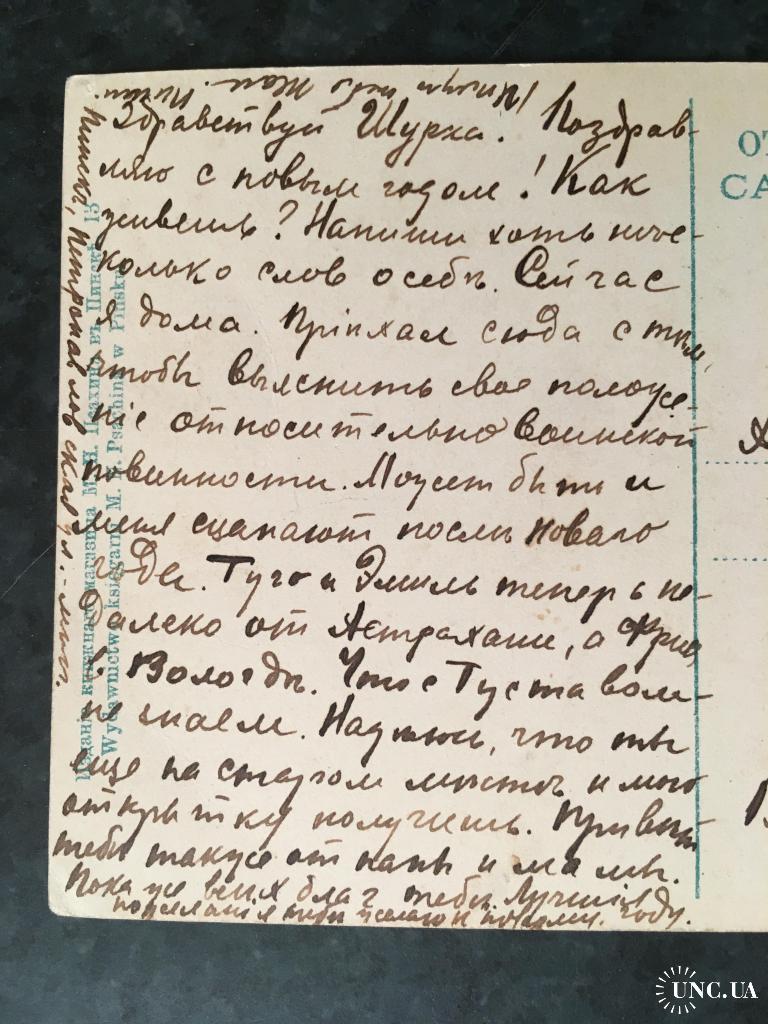 Здравствуй Шурка. Поздрав-
ляю с новым годом! Как
живешь? Напиши хоть нѣс-
колько слов о себѣ. Сейчас
я дома. Пріѣхал сюда с тѣм,
чтобы выяснить свое положе-
ніе относительно воинской
повинности. Может быть и
меня сцапают послѣ новаго
года. Гуго и Эмиль теперь не-
далеко от Астрахани, а Фриц
в Вологдѣ. Что с Густавом
не знаем. Надѣюсь, что ты
еще на старом мѣстѣ и мою
открытку получишь. Привѣт
тебѣ также от папы и мамы.
Пока же всѣх благ тебѣ. Лучшія
пожеланія тебѣ желаю к новому году.
Пинск, Петропавловская ул.
Изданіе книжнаго магазина М. Н. Псахина въ Пинскѣ. 15
Wydawnictwo księgarni M. N. Psachina w Pińsku
ОТ
СА
UNC.UA